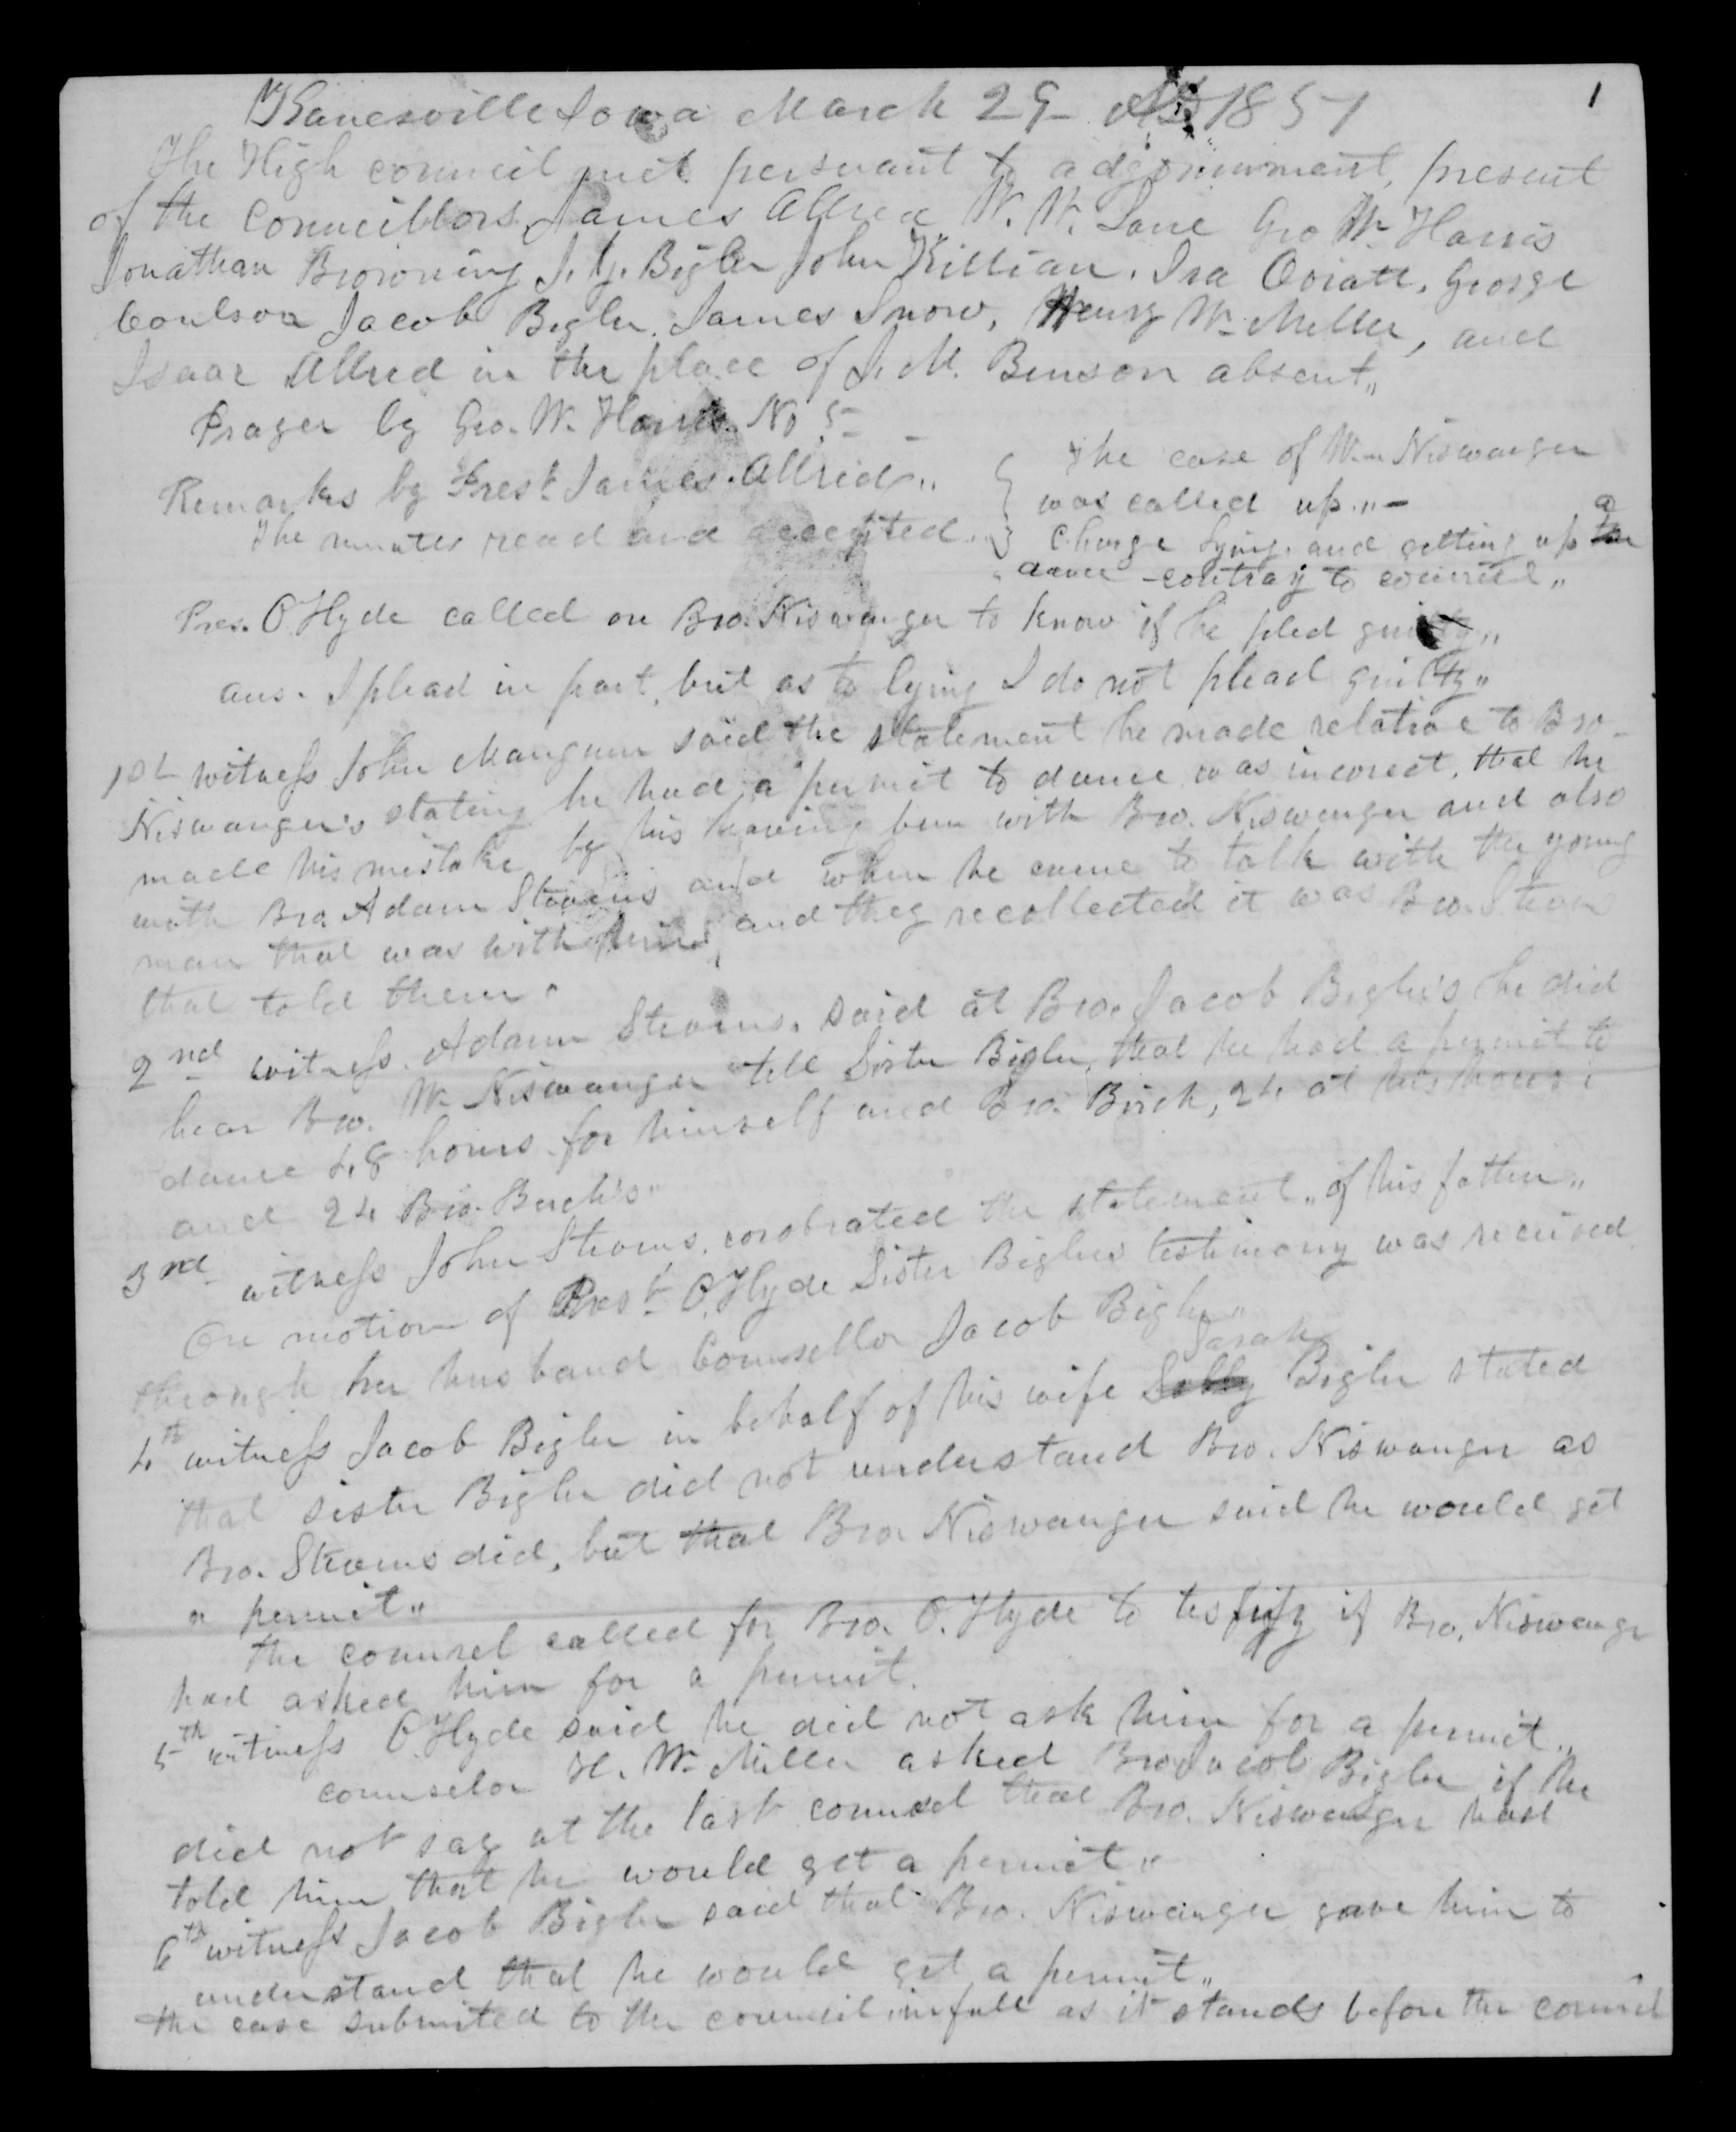 1
Kanesville Iowa March 29 AD 1851
The High council met persuant to adgournment, present
of the Councillors, James Allred W. W. Lane Geo W. Harris
Jonathan Browning J. G. Bigler John Killian, Ira Oviatt, George
Coulson Jacob Bigler, James Snow, Henry W. Miller, and
Isaac Allred in the place of J. M. Benson absent,,
Prayer by Geo. W. Harris. No 5
Remarks by Prest James Allred,,
The minutes read and accepted..
The case of Wm Niswanger
was called up.,,-
Charge Lying, and getting up a
dance contray to council,,
Pres. O Hyde called on Bro. Niswanger to know if he pled guilty,,
ans. I plead in part, but as to lying I do not plead guilty,,
1st witness John Mangum said the statement he made relative to Bro
Niswanger's stating he had a permit to dance was incorect, that he
made his mistake by his having been with Bro. Niswanger and also
with Bro. Adam Stevens and when he came to talk with the young
man that was with him, and they recollected it was Bro. Stevens
that told them.
2nd witness. Adam Stevens. said at Bro. Jacob Bigler's he did
hear Bro. W. Niswanger tell Sister Bigler, that he had a permit to
dance 48 hours for himself and Bro. Birch, 24 at his house
and 24 Bro. Burch's"
3rd witness John Stevens, corobrated the statement,, of his father,,
On motion of Prest O. Hyde Sister Biglers testimony was received
through her husband Counsellor Jacob Bigler"
4th witness Jacob Bigler in behalf of his wife Sarah Bigler stated
that sister Bigler did not understand Bro. Niswanger as
Bro. Stevens did, but that Bro. Niswanger said he would get
a permit"
the counsel called for Bro. O. Hyde to testify if Bro. Niswanger
had asked him for a permit.
5th witness O Hyde said he did not ask him for a permit..
counselor H. W. Miller asked Bro Jacob Bigler if he
did not say at the last counsel that Bro. Niswanger had
told him that he would get a permit"
6th witness Jacob Bigler said that Bro. Niswanger gave him to
understand that he would get a permit,,
the case submited to the council in full as it stands before the council